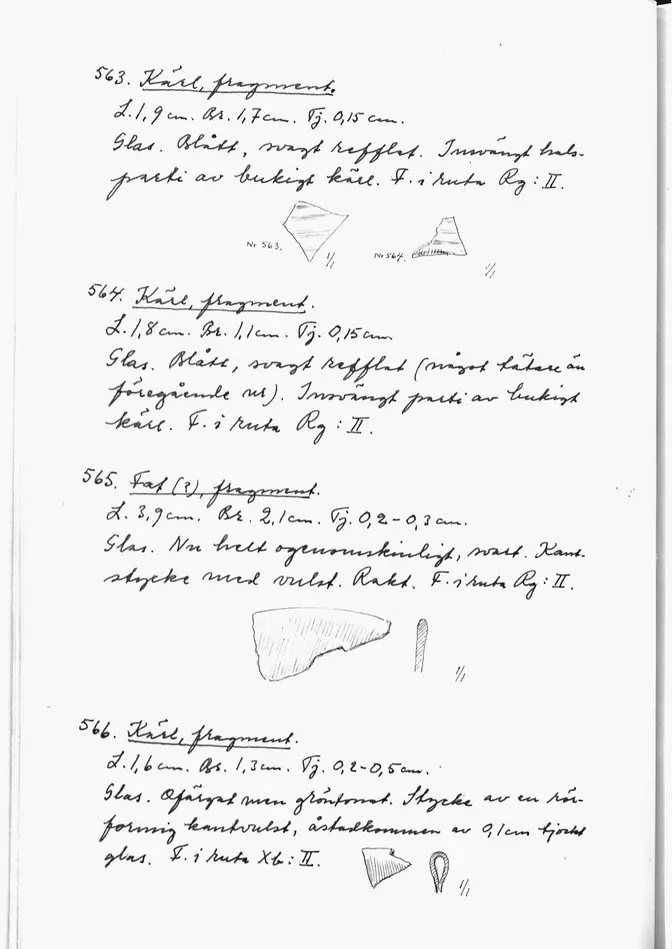 563. Kärl, fragment.
L. 1,9 cm. Br. 1,7 cm. Tj. 0,15 cm.
Glas. Blått, svagt refflat. Insvängt hals-
parti av bukigt kärl. F. i ruta Rg : II.
Nr 563. 1/1 Nr 564. 1/1
564. Kärl, fragment.
L. 1,8 cm. Br. 1,1 cm. Tj. 0,15 cm.
Glas. Blått, svagt refflat (något tätare än
föregående nr). Insvängt parti av bukigt
kärl. F. i ruta Rg : II.
565. Fat (?), fragment.
L. 3,9 cm. Br. 2,1 cm. Tj. 0,2-0,3 cm.
Glas. Nu helt ogenomskinligt, svart. Kant-
stycke med vulst. Rakt. F. i ruta Rg : II.
1/1
566. Kärl, fragment.
L. 1,6 cm. Br. 1,3 cm. Tj. 0,2-0,5 cm.
Glas. Ofärgat men gröntonat. Stycke av en rör-
formig kantvulst, åstadkommen av 0,1 cm tjockt
glas. F. i ruta Xb : II.
1/1